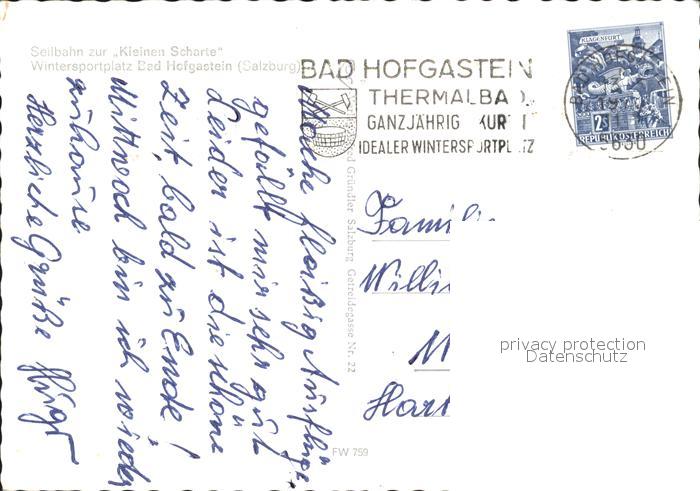 Seilbahn zur „Kleinen Scharte"
Wintersportplatz Bad Hofgastein (Salzburg)
BAD HOFGASTEIN
THERMALBAD
GANZJÄHRIG KURT
IDEALER WINTERSPORTPLATZ
KLAGENFURT
REPUBLIK ÖSTERREICH
5630
Mache fleißig Ausflüge
gefällt mir sehr gut
Leider ist die schöne
Zeit bald zu Ende!
Mittwoch bin ich wieder
zuhause
Herzliche Grüße
Gründler Salzburg Getreidegasse Nr. 22
FW 759
Famili
Willi
M
Hart
privacy protection
Datenschutz